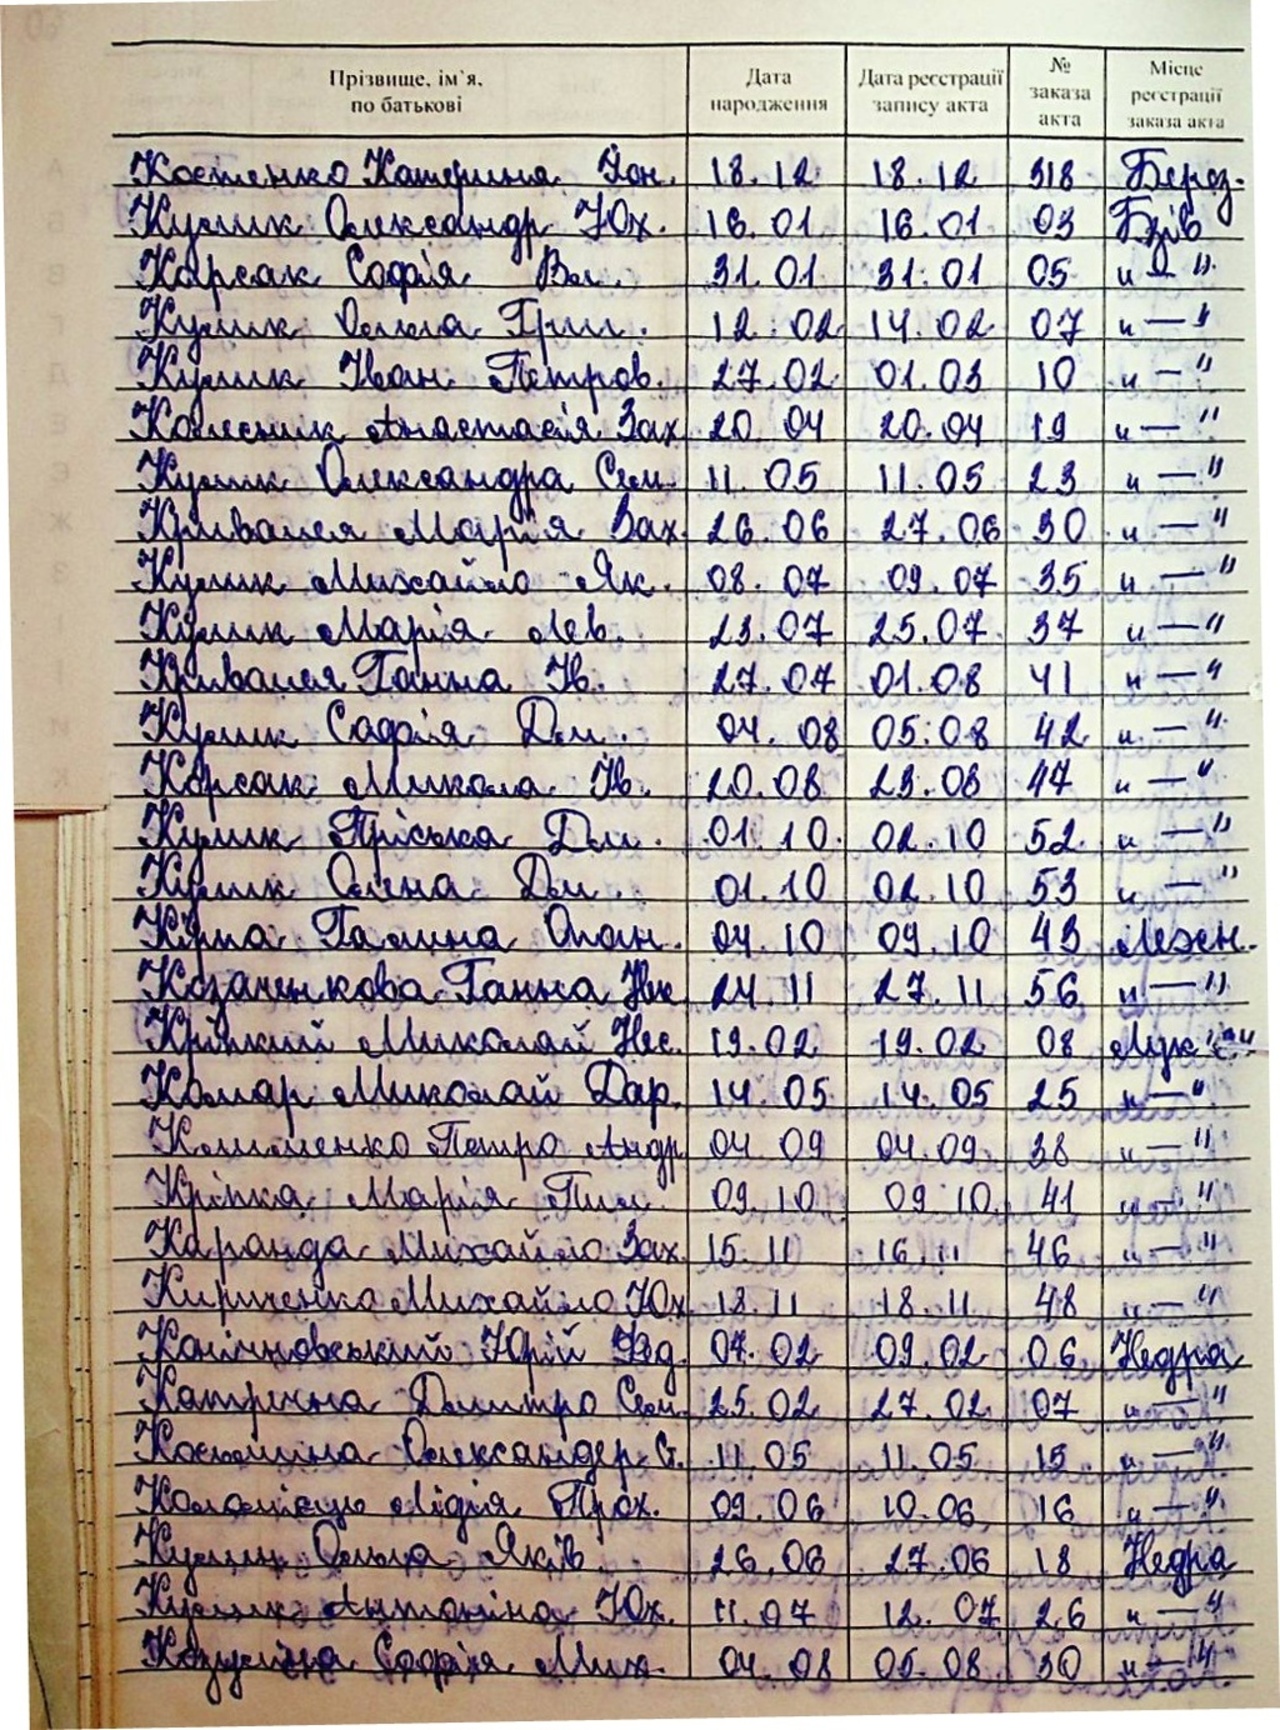 Прізвище, ім`я, по батькові Дата народження Дата реєстрації запису акта № заказа акта Місце реєстрації заказа акта
Костенко Катерина Іон. 18.12 18.12 318 Берез.
Кулик Олександр Юх. 16.01 16.01 03 Бзів
Корсак Софія Вл. 31.01 31.01 05 "—"
Кулик Ольга Григ. 12.02 14.02 07 "—"
Кулик Іван Петров. 27.02 01.03 10 "—"
Колесник Анастасія Зах. 20.04 20.04 19 "—"
Кулик Олександра Сем. 11.05 11.05 23 "—"
Кривошея Марія Зах. 26.06 27.06 30 "—"
Кулик Михайло Як. 08.07 09.07 35 "—"
Кулик Марія Лев. 23.07 25.07 37 "—"
Кривошея Ганна Ів. 27.07 01.08 41 "—"
Кулик Софія Дм. 04.08 05.08 42 "—"
Корсак Микола Ів. 20.08 23.08 47 "—"
Кулик Пріська Дм. 01.10 02.10 52 "—"
Кулик Олена Дм. 01.10 02.10 53 "—"
Кірпа Галина Опан. 04.10 09.10 43 Лехн.
Козаченкова Ганна 24.11 27.11 56 "—"
Кріпкий Миколай Нес. 19.02 19.02 08
Комар Миколай Дар. 14.05 14.05 25 "—"
Клименко Петро Андр. 04.09 04.09 38 "—"
Кріпка Марія Пил. 09.10 09.10 41 "—"
Каранда Михайло Зах. 15.11 16.11 46 "—"
Кириченко Михайло Юх. 18.11 18.11 48 "—"
Юрій Фед. 07.02 09.02 06 Недра
Катрична Дмитро Сем. 25.02 27.02 07 "—"
Костюшина Олександер С. 11.05 11.05 15 "—"
Коломієць Лідія Прох. 09.06 10.06 16 "—"
Кулик Ольга Яків. 26.06 27.06 18 Недра
Кулик Антоніна Юх. 11.07 12.07 26 "—"
Софія Мих. 04.08 05.08 30 "—"